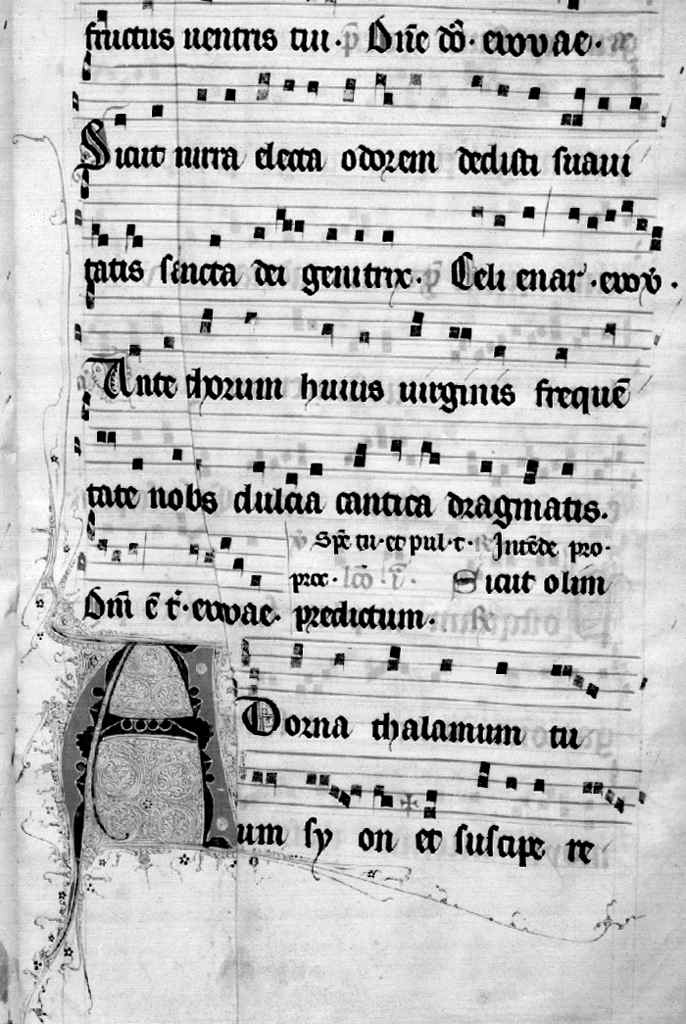 fructus uentris tui. p̄ Dn̄e dō. euouae.
Sicut mirra electa odorem dedisti suaui
tatis sancta dei genitrix. p̄ Celi enar. euoū.
Ante thorum huius uirginis frequē
tate nobis dulcia cantica dragmatis.
Spē tu. et pul. t. R Intēde pro.
proc. lc̄o. ī. Sicut olim
Dn̄i ē t̄. euouae. predictum. R
Adorna thalamum tu
um sy on et suscipe re